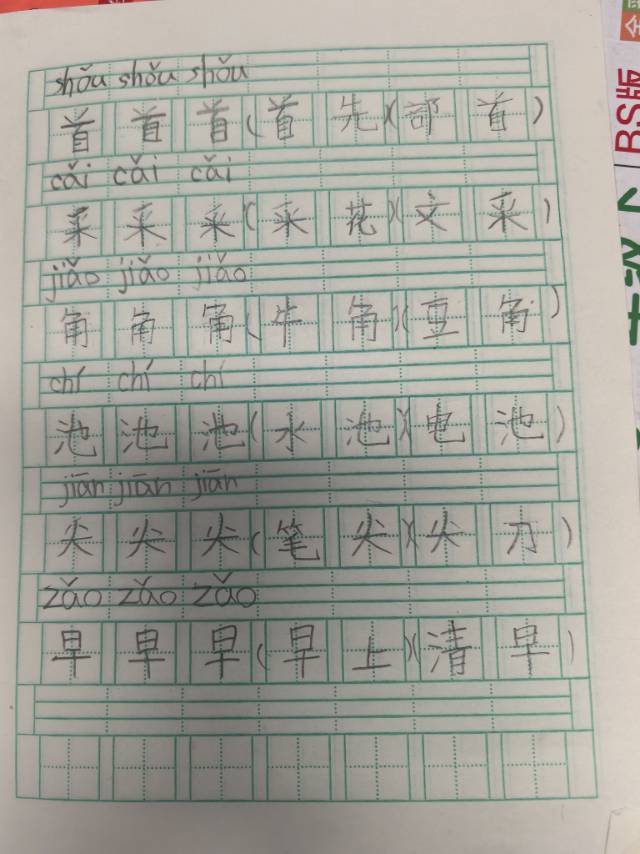 shǒu shǒu shǒu
首 首 首 ( 首 先 )( 部 首 )
cǎi cǎi cǎi
采 采 采 ( 采 花 )( 文 采 )
jiǎo jiǎo jiǎo
角 角 角 ( 牛 角 )( 豆 角 )
chí chí chí
池 池 池 ( 水 池 )( 电 池 )
jiān jiān jiān
尖 尖 尖 ( 笔 尖 )( 尖 刀 )
zǎo zǎo zǎo
早 早 早 ( 早 上 )( 清 早 )
BS版